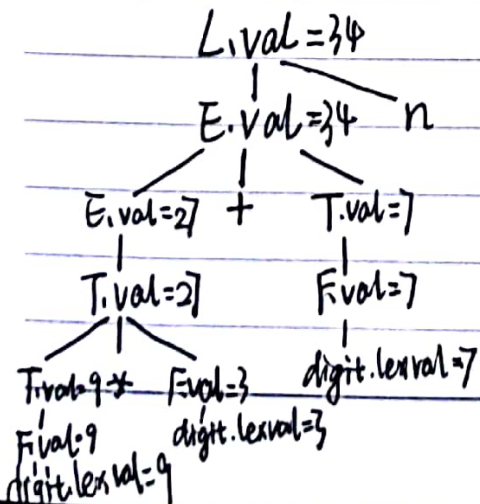 L.val=34
E.val=34 n
E.val=27 + T.val=7
T.val=27 F.val=7
T.val=9 * F.val=3 digit.lexval=7
F.val=9 digit.lexval=3
digit.lexval=9